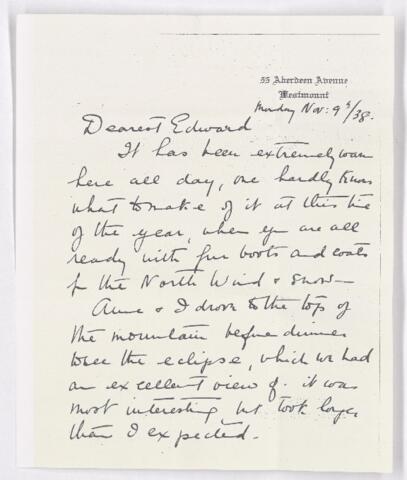 55 Aberdeen Avenue
Westmount
Monday Nov: 9th/38.
Dearest Edward
It has been extremely warm
here all day, one hardly knows
what to make of it at this time
of the year, when you are all
ready with fur boots and coats
for the North Wind & Snow—
Anne & I drove to the top of
the mountain before dinner
to see the eclipse, which we had
an excellent view of. it was
most interesting, but took longer
than I expected.